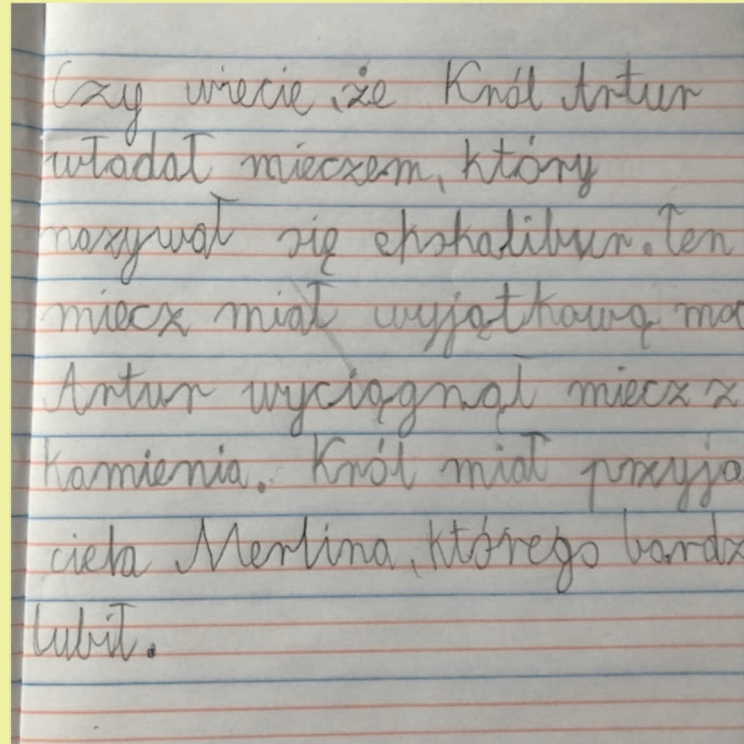 Czy wiecie, że Król Artur
władał mieczem, który
nazywał się ekskalibur. Ten
miecz miał wyjątkową mo
Artur wyciągnął miecz z
kamienia. Król miał przyja
ciela Merlina, którego bardz
lubił.